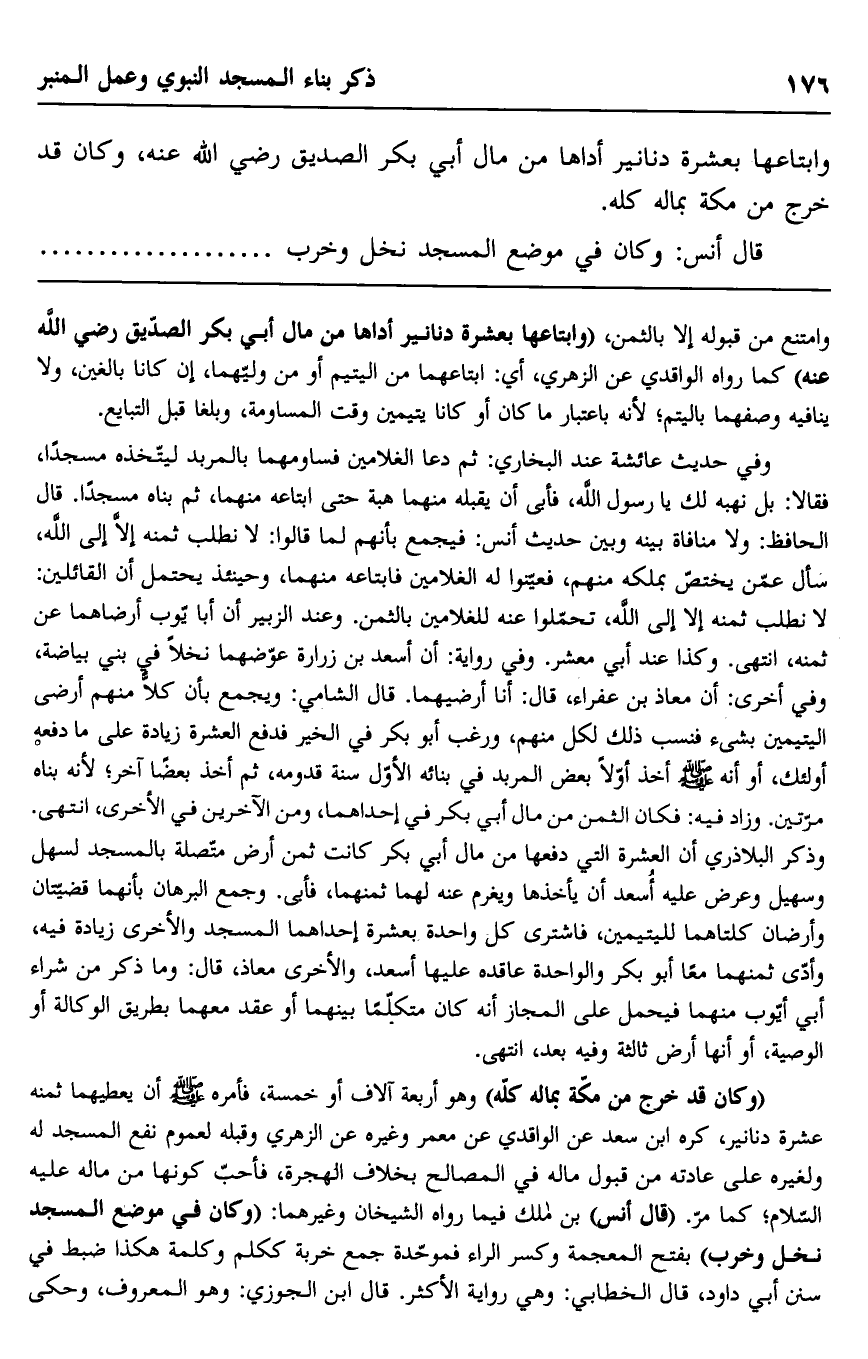 ١٧٦ ذكر بناء المسجد النبوي وعمل المنبر
وابتاعها بعشرة دنانير أداها من مال أبي بكر الصديق رضي الله عنه، وكان قد
خرج من مكة بماله كله.
قال أنس: وكان في موضع المسجد نخل وخرب ....................
وامتنع من قبوله إلا بالثمن، (وابتاعها بعشرة دنانير أداها من مال أبي بكر الصدّيق رضي اللَّه
عنه) كما رواه الواقدي عن الزهري، أي: ابتاعهما من اليتيم أو من وليّهما، إن كانا بالغين، ولا
ينافيه وصفهما باليتم؛ لأنه باعتبار ما كان أو كانا يتيمين وقت المساومة، وبلغا قبل التبايع.
وفي حديث عائشة عند البخاري: ثم دعا الغلامين فساومهما بالمربد ليتّخذه مسجدًا،
فقالا: بل نهبه لك يا رسول اللَّه، فأبى أن يقبله منهما هبة حتى ابتاعه منهما، ثم بناه مسجدًا. قال
الحافظ: ولا منافاة بينه وبين حديث أنس: فيجمع بأنهم لما قالوا: لا نطلب ثمنه إلاَّ إلى اللَّه،
سَأل عمّن يختصّ بملكه منهم، فعيّنوا له الغلامين فابتاعه منهما، وحينئذ يحتمل أن القائلين:
لا نطلب ثمنه إلا إلى اللَّه، تحمّلوا عنه للغلامين بالثمن. وعند الزبير أن أبا يّوب أرضاهما عن
ثمنه، انتهى. وكذا عند أبي معشر. وفي رواية: أن أسعد بن زرارة عوّضهما نخلاً في بني بياضة،
وفي أخرى: أن معاذ بن عفراء، قال: أنا أرضيهما. قال الشامي: ويجمع بأن كلاًّ منهم أرضى
اليتيمين بشىء فنسب ذلك لكل منهم، ورغب أبو بكر في الخير فدفع العشرة زيادة على ما دفعه
أولئك، أو أنه ﷺ أخذ أوّلاً بعض المربد في بنائه الأوّل سنة قدومه، ثم أخذ بعضًا آخر؛ لأنه بناه
مرّتين. وزاد فيه: فكان الثمن من مال أبي بكر في إحداهما، ومن الآخرين في الأخرى، انتهى.
وذكر البلاذري أن العشرة التي دفعها من مال أبي بكر كانت ثمن أرض متّصلة بالمسجد لسهل
وسهيل وعرض عليه أُسعد أن يأخذها ويغرم عنه لهما ثمنهما، فأبى. وجمع البرهان بأنهما قضيّتان
وأرضان كلتاهما لليتيمين، فاشترى كل واحدة بعشرة إحداهما المسجد والأخرى زيادة فيه،
وأدّى ثمنهما معًا أبو بكر والواحدة عاقده عليها أسعد، والأخرى معاذ، قال: وما ذكر من شراء
أبي أيّوب منهما فيحمل على المجاز أنه كان متكلّمًا بينهما أو عقد معهما بطريق الوكالة أو
الوصية، أو أنها أرض ثالثة وفيه بعد، انتهى.
(وكان قد خرج من مكّة بماله كلّه) وهو أربعة آلاف أو خمسة، فأمره ﷺ أن يعطيهما ثمنه
عشرة دنانير، كره ابن سعد عن الواقدي عن معمر وغيره عن الزهري وقبله لعموم نفع المسجد له
ولغيره على عادته من قبول ماله في المصالح بخلاف الهجرة، فأحبّ كونها من ماله عليه
السّلام؛ كما مرّ. (قال أنس) بن لملك فيما رواه الشيخان وغيرهما: (وكان في موضع المسجد
نخل وخرب) بفتح المعجمة وكسر الراء فموحّدة جمع خربة ككلم وكلمة هكذا ضبط في
سنن أبي داود، قال الخطابي: وهي رواية الأكثر. قال ابن الجوزي: وهو المعروف، وحكى